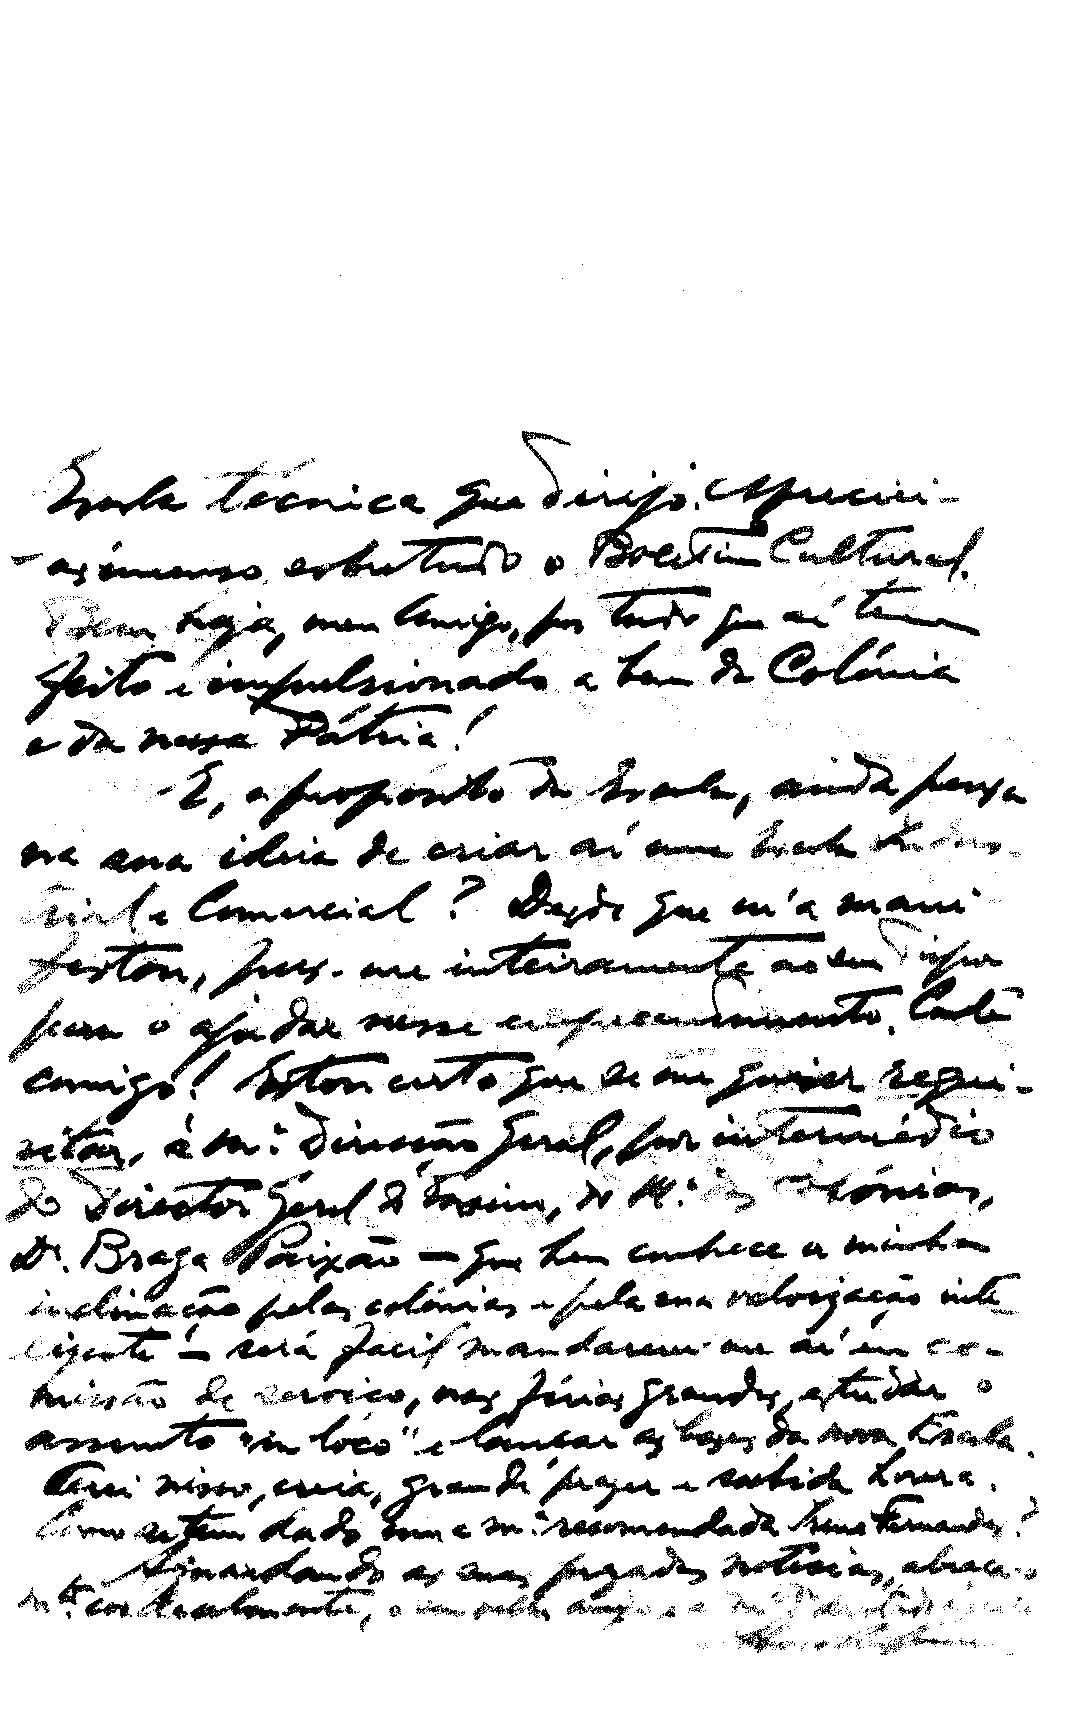 Escola técnica que dirijo. Apreciei-
-os imenso sobretudo o Boletim Cultural.
Bem haja, meu Amigo, por tudo que aí tem
feito e impulsionado a bem da Colónia
e da nossa Pátria!
E, a propósito da Escola, ainda pensa
na sua ideia de criar aí uma Escola Indus-
trial e Comercial? Desde que m'a mani-
festou, pus-me inteiramente ao seu dispor
para o ajudar nesse empreendimento. Conte
comigo! Estou certo que se me quiser requi-
sitar, à m.ª Direcção Geral, por intermédio
do Director Geral do Ensino, do M.º das Colónias,
Dr. Braga Paixão — que bem conhece a minha
inclinação pelas colónias e pela sua valorização inte-
ligente — será facil mandarem-me aí em co-
missão de serviço, nas férias grandes, estudar o
assunto "in loco" e lançar as bases da nova Escola.
Terei nisso, creia, grande prazer e subida honra.
Como se tem dado com a m.ª recomendada Irene Fernandes?
Aguardando as suas prezadas noticias, abraça-o
m.to cordealmente, o seu velho amigo e